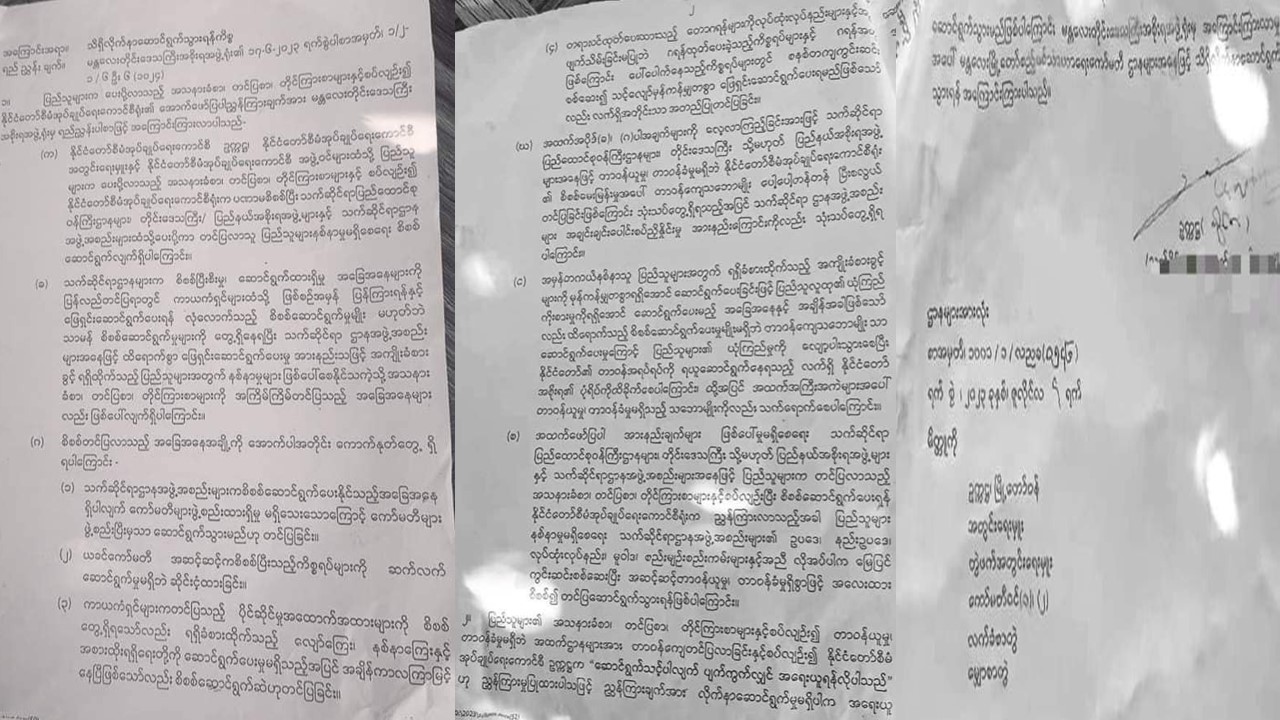 အကြောင်းအရာ။ သိရှိလိုက်နာဆောင်ရွက်သွားရန်ကိစ္စ
ရည် ညွှန်း ချက်။ မန္တလေးတိုင်းဒေသကြီးအစိုးရအဖွဲ့ရုံး၏ ၁၇-၆-၂၀၂၃ ရက်စွဲပါစာအမှတ်၊ ၁/၂-
၁ / ၆ ဦး ၆ (၂၀၂၄)
၁။ ပြည်သူများက ပေးပို့လာသည့် အသနားခံစာ၊ တင်ပြစာ၊ တိုင်ကြားစာများနှင့်စပ်လျဉ်း၍
နိုင်ငံတော်စီမံအုပ်ချုပ်ရေးကောင်စီရုံး၏ အောက်ဖော်ပြပါညွှန်ကြားချက်အား မန္တလေးတိုင်းဒေသကြီး
အစိုးရအဖွဲ့ရုံးမှ ရည်ညွှန်းပါစာဖြင့် အကြောင်းကြားလာပါသည်-
(က) နိုင်ငံတော်စီမံအုပ်ချုပ်ရေးကောင်စီ ဥက္ကဋ္ဌ၊ နိုင်ငံတော်စီမံအုပ်ချုပ်ရေးကောင်စီ
အတွင်းရေးမှူးနှင့် နိုင်ငံတော်စီမံအုပ်ချုပ်ရေးကောင်စီ အဖွဲ့ဝင်များထံသို့ ပြည်သူ
များက ပေးပို့လာသည့် အသနားခံစာ၊ တင်ပြစာ၊ တိုင်ကြားစာများနှင့် စပ်လျဉ်း၍
နိုင်ငံတော်စီမံအုပ်ချုပ်ရေးကောင်စီရုံးက ပဏာမစိစစ်ပြီး သက်ဆိုင်ရာပြည်ထောင်စု
ဝန်ကြီးဌာနများ၊ တိုင်းဒေသကြီး/ ပြည်နယ်အစိုးရအဖွဲ့များနှင့် သက်ဆိုင်ရာဌာန
အဖွဲ့အစည်းများထံသို့ပေးပို့ကာ တင်ပြလာသူ ပြည်သူများနစ်နာမှုမရှိစေရေး စိစစ်
ဆောင်ရွက်လျက်ရှိပါကြောင်း၊
(ခ) သက်ဆိုင်ရာဌာနများက စိစစ်ပြီးစီးမှု၊ ဆောင်ရွက်ထားရှိမှု အခြေအနေများကို
ပြန်လည်တင်ပြရာတွင် ကာယကံရှင်များထံသို့ ဖြစ်စဉ်အမှန် ပြန်ကြားရန်နှင့်
ဖြေရှင်းဆောင်ရွက်ပေးရန် လုံလောက်သည့် စိစစ်ဆောင်ရွက်မှုမျိုး မဟုတ်ဘဲ
သာမန် စိစစ်ဆောင်ရွက်မှုများကို တွေ့ရှိနေရပြီး သက်ဆိုင်ရာ ဌာနအဖွဲ့အစည်း
များအနေဖြင့် ထိရောက်စွာ ဖြေရှင်းဆောင်ရွက်ပေးမှု အားနည်းသဖြင့် အကျိုးခံစား
ခွင့် ရရှိထိုက်သည့် ပြည်သူများအတွက် နစ်နာမှုများ ဖြစ်ပေါ်စေနိုင်သကဲ့သို့ အသနား
ခံစာ၊ တင်ပြစာ၊ တိုင်ကြားစာများကို အကြိမ်ကြိမ်တင်ပြသည့် အခြေအနေများ
လည်း ဖြစ်ပေါ်လျက်ရှိပါကြောင်း၊
(ဂ) စိစစ်တင်ပြလာသည့် အခြေအနေအချို့ကို အောက်ပါအတိုင်း ကောက်နုတ်တွေ့ ရှိ
ရပါကြောင်း -
(၁) သက်ဆိုင်ရာဌာနအဖွဲ့အစည်းများကစိစစ်ဆောင်ရွက်ပေးနိုင်သည့်အခြေအနေ
ရှိပါလျက် ကော်မတီများဖွဲ့စည်းထားရှိမှု မရှိသေးသောကြောင့် ကော်မတီများ
ဖွဲ့စည်းပြီးမှသာ ဆောင်ရွက်သွားမည်ဟု တင်ပြခြင်း၊
(၂) ယခင်ကော်မတီ အဆင့်ဆင့်ကစိစစ်ပြီးသည့်ကိစ္စရပ်များကို ဆက်လက်
ဆောင်ရွက်မှုမရှိဘဲ ဆိုင်းငံ့ထားခြင်း၊
(၃) ကာယကံရှင်များကတင်ပြသည့် ပိုင်ဆိုင်မှုအထောက်အထားများကို စိစစ်
တွေ့ရှိရသော်လည်း ရရှိခံစားထိုက်သည့် လျော်ကြေး၊ နစ်နာကြေးနှင့်
အစားထိုးရရှိရေးတို့ကို ဆောင်ရွက်ပေးမှုမရှိသည့်အပြင် အချိန်ကာလကြာမြင့်
နေပြီဖြစ်သော်လည်း စိစစ်ဆောင်ရွက်ဆဲဟုတင်ပြခြင်း၊
၂
(၄) တရားဝင်ထုတ်ပေးထားသည့် တောဂရန်များကိုလုပ်ထုံးလုပ်နည်းများနှင့်အညီ
ပျက်သိမ်းခြင်းမပြုဘဲ ဂရန်ထုတ်ပေးခဲ့သည့်ကိစ္စရပ်များနှင့်
ဖြစ်ကြောင်း ပေါ်ပေါက်နေသည့်ကိစ္စရပ်များတွင် စနစ်တကျကွင်းဆင်း
စစ်ဆေး၍ သင့်လျော်မှန်ကန်မျှတစွာ ဖြေရှင်းဆောင်ရွက်ပေးရမည်ဖြစ်သော်
လည်း လက်ရှိအတိုင်းသာ အတည်ပြုတင်ပြခြင်း၊
(ဃ) အထက်အပိုဒ်(ခ)၊ (ဂ)ပါအချက်များကို လေ့လာကြည့်ခြင်းအားဖြင့် သက်ဆိုင်ရာ
ပြည်ထောင်စုဝန်ကြီးဌာနများ၊ တိုင်းဒေသကြီး သို့မဟုတ် ပြည်နယ်အစိုးရအဖွဲ့
များအနေဖြင့် တာဝန်ယူမှု၊ တာဝန်ခံမှုမရှိဘဲ နိုင်ငံတော်စီမံအုပ်ချုပ်ရေးကောင်စီရုံး
၏ စိစစ်မေးမြန်းမှုအပေါ် တာဝန်ကျေသဘောမျိုး ပေါ့ပေါ့တန်တန် ပြီးစလွယ်
တင်ပြခြင်းဖြစ်ကြောင်း သုံးသပ်တွေ့ရှိရသည့်အပြင် သက်ဆိုင်ရာ ဌာနအဖွဲ့အစည်း
များ အချင်းချင်းပေါင်းစပ်ညှိနှိုင်းမှု အားနည်းကြောင်းကိုလည်း သုံးသပ်တွေ့ရှိရ
ပါကြောင်း၊
(င) အမှန်တကယ်နစ်နာသူ ပြည်သူများအတွက် ရရှိခံစားထိုက်သည့် အကျိုးခံစားခွင့်
များကို မှန်ကန်မျှတစွာရရှိအောင် ဆောင်ရွက်ပေးခြင်းဖြင့် ပြည်သူလူထု၏ ယုံကြည်
ကိုးစားမှုကိုရရှိအောင် ဆောင်ရွက်ပေးမည့် အခြေအနေနှင့် အချိန်အခါဖြစ်သော်
လည်း ထိရောက်သည့် စိစစ်ဆောင်ရွက်ပေးမှုမျိုးမရှိဘဲ တာဝန်ကျေသဘောမျိုး သာ
ဆောင်ရွက်ပေးမှုကြောင့် ပြည်သူများ၏ ယုံကြည်မှုကို လျော့ပါးသွားစေပြီး
နိုင်ငံတော်၏ တာဝန်အရပ်ရပ်ကို ရယူဆောင်ရွက်နေရသည့် လက်ရှိ နိုင်ငံတော်
အစိုးရ၏ ပုံရိပ်ကိုထိခိုက်စေပါကြောင်း၊ ထို့အပြင် အထက်အကြီးအကဲများအပေါ်
တာဝန်ယူမှု၊ တာဝန်ခံမှုမရှိသည့် သဘောမျိုးကိုလည်း သက်ရောက်စေပါကြောင်း၊
(စ) အထက်ဖော်ပြပါ အားနည်းချက်များ ဖြစ်ပေါ်မှုမရှိစေရေး သက်ဆိုင်ရာ
ပြည်ထောင်စုဝန်ကြီးဌာနများ၊ တိုင်းဒေသကြီး သို့မဟုတ် ပြည်နယ်အစိုးရအဖွဲ့များ
နှင့် သက်ဆိုင်ရာဌာနအဖွဲ့အစည်းများအနေဖြင့် ပြည်သူများက တင်ပြလာသည့်
အသနားခံစာ၊ တင်ပြစာ၊ တိုင်ကြားစာများနှင့်စပ်လျဉ်းပြီး စိစစ်ဆောင်ရွက်ပေးရန်
နိုင်ငံတော်စီမံအုပ်ချုပ်ရေးကောင်စီရုံးက ညွှန်ကြားလာသည့်အခါ ပြည်သူများ
နစ်နာမှုမရှိစေရေး သက်ဆိုင်ရာဌာနအဖွဲ့အစည်းများ၏ ဥပဒေ၊ နည်းဥပဒေ၊
လုပ်ထုံးလုပ်နည်း၊ မူဝါဒ၊ စည်းမျဉ်းစည်းကမ်းများနှင့်အညီ လိုအပ်ပါက မြေပြင်
ကွင်းဆင်းစစ်ဆေးပြီး အဆင့်ဆင့်တာဝန်ယူမှု၊ တာဝန်ခံမှုရှိစွာဖြင့် အလေးထား
စိစစ်၍ တင်ပြဆောင်ရွက်သွားရန်ဖြစ်ပါကြောင်း။
၂။ ပြည်သူများ၏ အသနားခံစာ၊ တင်ပြစာ၊ တိုင်ကြားစာများနှင့်စပ်လျဉ်း၍ တာဝန်ယူမှု၊
တာဝန်ခံမှုမရှိဘဲ အထက်ဌာနများအား တာဝန်ကျေတင်ပြလာခြင်းနှင့်စပ်လျဉ်း၍ နိုင်ငံတော်စီမံ
အုပ်ချုပ်ရေးကောင်စီ ဥက္ကဋ္ဌက "ဆောင်ရွက်သင့်ပါလျက် ပျက်ကွက်လျှင် အရေးယူရန်လိုပါသည်"
ဟု ညွှန်ကြားမှုပြုထားပါသဖြင့် ညွှန်ကြားချက်အား လိုက်နာဆောင်ရွက်မှုမရှိပါက အရေးယူ
ဆောင်ရွက်သွားမည်ဖြစ်ပါကြောင်း မန္တလေးတိုင်းဒေသကြီးအစိုးရအဖွဲ့ရုံးမှ အကြောင်းကြားလာ
အပေါ် မန္တလေးမြို့တော်စည်ပင်သာယာရေးကော်မတီ ဌာနများအနေဖြင့် သိရှိလိုက်နာဆောင်ရွက်
သွားရန် အကြောင်းကြားပါသည်။
ဥက္ကဋ္ဌ
ဌာနများအားလုံး
စာအမှတ်၊ ၁၀၀၁ / ၁ / လညခ
ရက် စွဲ ၊ ၂၀၂၃ ခုနှစ်၊ ဇူလိုင်လ ရက်
မိတ္တူကို
ဥက္ကဋ္ဌ၊ မြို့တော်ဝန်
အတွင်းရေးမှူး
တွဲဖက်အတွင်းရေးမှူး
ကော်မတီဝင်(၁)၊ (၂)
လက်ခံစာတွဲ
မျှောစာတွဲ